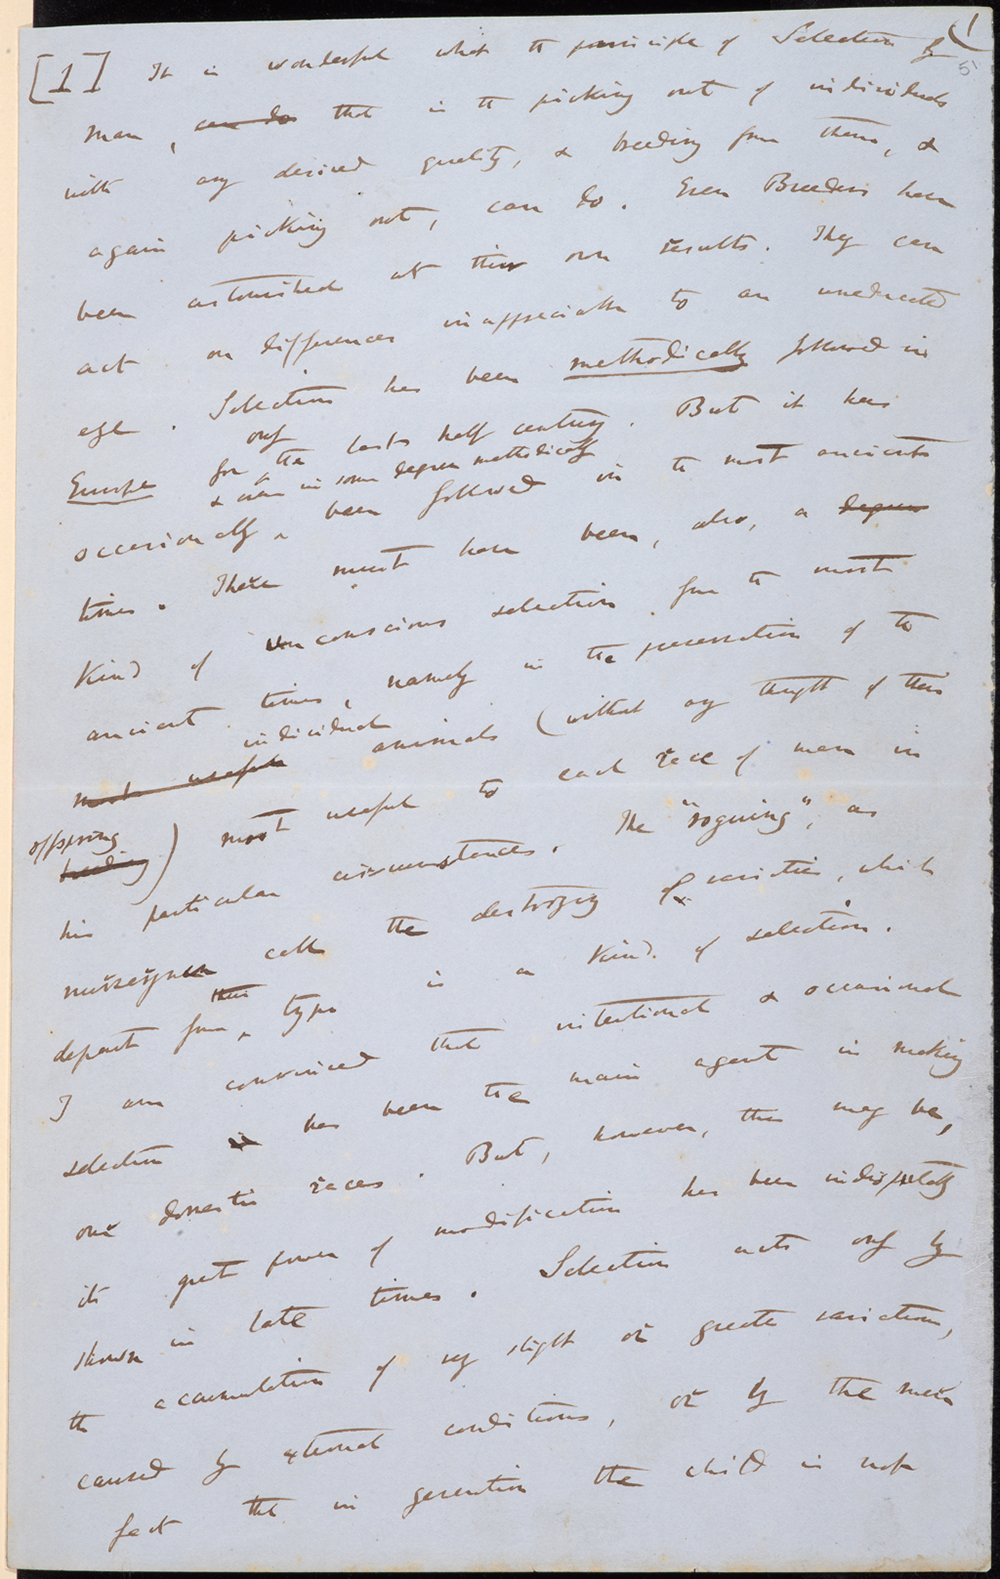 [1] It is wonderful what the principle of Selection by
51
man, can do that is the picking out of individuals
with any desired quality, & breeding from them, &
again picking out, can do. Even Breeders have
been astonished at their own results. They can
act on differences inappreciable to an uneducated
eye. Selection has been methodically followed in
Europe for only the last half century. But it has
occasionally, & even in some degree methodically been followed in the most ancient
times. There must have been, also, a degree
kind of unconscious selection from the most
ancient times, namely in the preservation of the
most useful individual animals (without any thought of their
offspring breeding) most useful to each race of man in
his particular circumstances. The "roguing", as
nurserymen call the destroying of varieties, which
depart from their type is a kind of selection.
I am convinced that intentional & occasional
selection is has been the main agent in making
our domestic races. But, however, this may be,
its great power of modification has been indisputably
shown in late times. Selection acts only by
the accumulation of very slight or greater variations,
caused by external conditions, or by the mere
fact that in generation the child is not